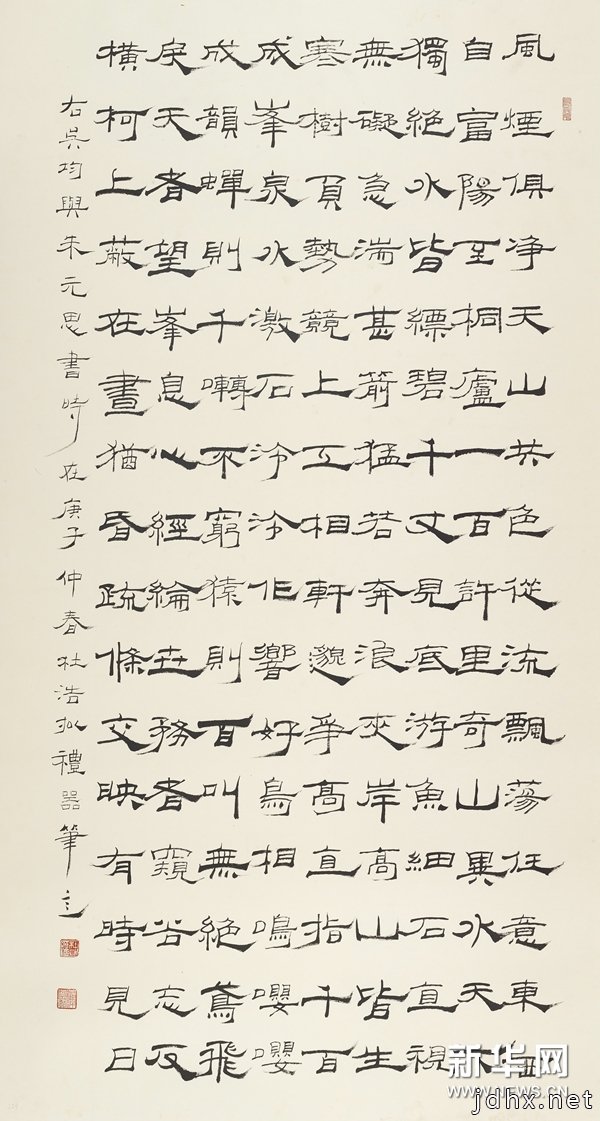 風煙俱净天山共色從流飄蕩任意東西
自富陽至桐廬一百許里奇山異水天下
獨絕水皆縹碧千丈見底游魚細石直視
無礙急湍甚箭猛若奔浪夾岸高山皆生
寒樹負勢競上互相軒邈爭高直指千百
成峯泉水激石泠泠作響好鳥相鳴嚶嚶
成韻蟬則千囀不窮猿則百叫無絕鳶飛
戾天者望峯息心經綸世務者窺谷忘反
橫柯上蔽在晝猶昏疏條交映有時見日
右吳均與朱元思書時在庚子仲春杜浩擬禮器筆意
新华网
WWW.NEWS.CN
jdhx.net